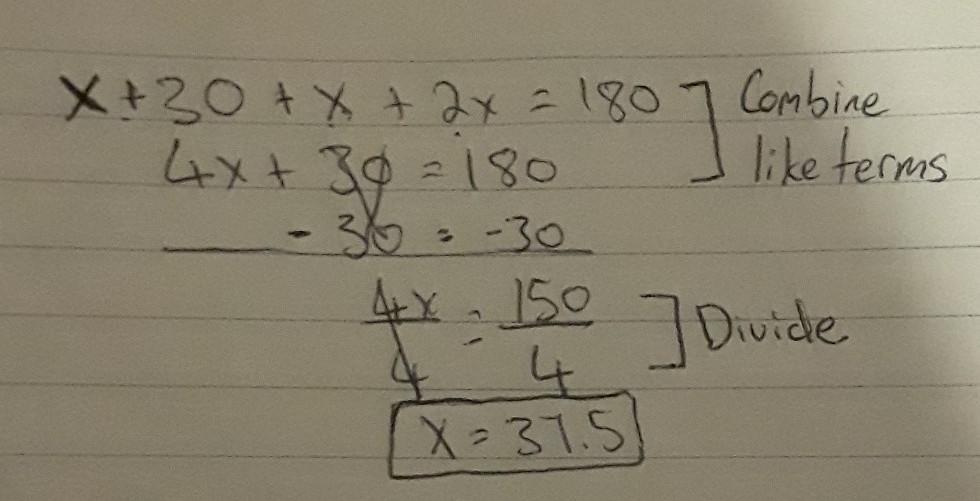 x + 30 + x + 2x = 180 ] Combine
4x + 30 = 180 like terms
- 30 = -30
4x = 150 ] Divide
4 4
x = 37.5